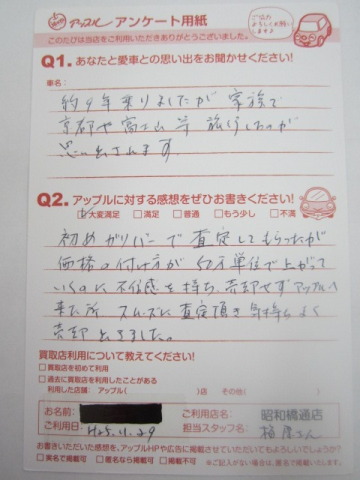 アップル アンケート用紙
ご協力よろしくお願いします♪
このたびは当店をご利用いただきありがとうございました。
Q1. あなたと愛車との思い出をお聞かせください!
車名:
約9年乗りましたが 家族で
京都や富士山 等 旅行したのが
思い出されます
Q2. アップルに対する感想をぜひお書きください!
大変満足 □満足 □普通 □もう少し □不満
初め ガリバーで査定してもらったが
価格の付け方が 5万単位で上がって
いくのに 不信感を持ち、売却せず アップルへ
来た所 スムーズに査定頂き 気持ちよく
売却出来ました。
買取店利用について教えてください!
□買取店を初めて利用
□過去に買取店を利用したことがある
利用した店舗: アップル( )店 その他( )
お名前: ご利用店名: 昭和橋通店
ご利用日: H25.11.29 担当スタッフ名: さん
お書きいただいた感想を、アップルHPや広告に掲載させていただいてもよろしいでしょうか?
□実名で掲載可 □匿名なら掲載可 □掲載不可 ※ご記入がない場合は、匿名で掲載いたします。